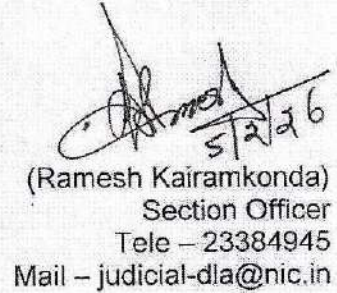 5/2/26
(Ramesh Kairamkonda)
Section Officer
Tele – 23384945
Mail – judicial-dla@nic.in